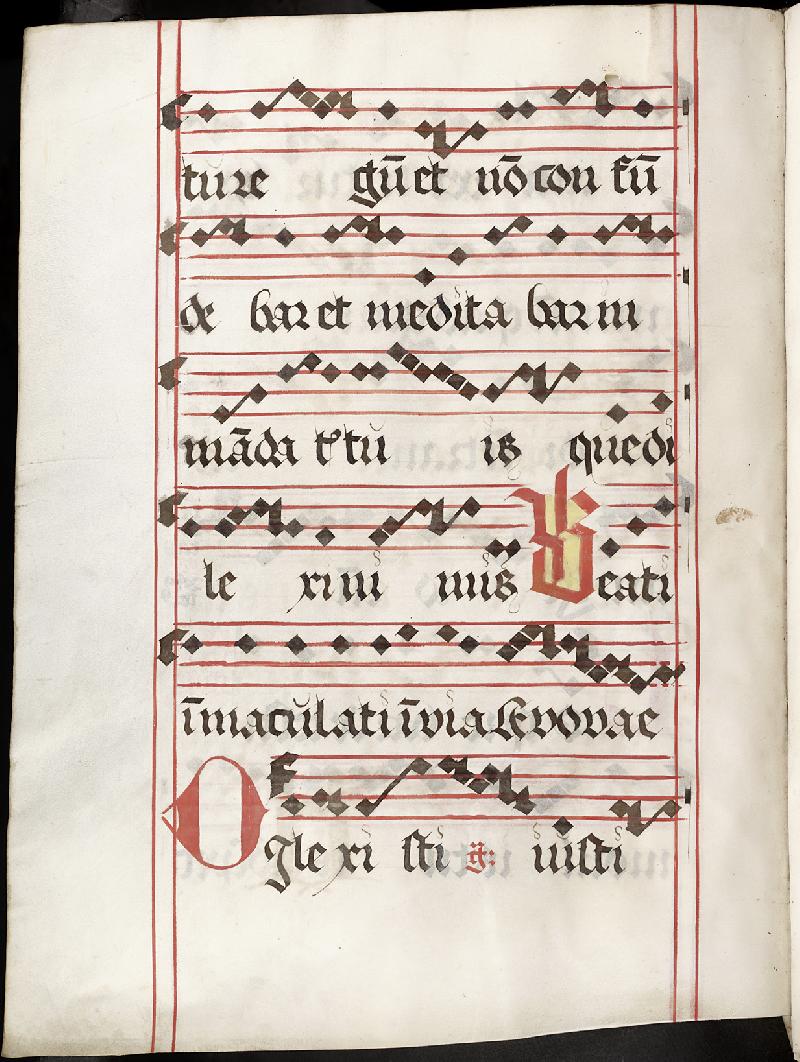 ture gūet nō con fū
de bar et medita bar in
māda t͛ tu is que di
le xi ni mis Beati
īmaculati ī via Evovae
Dilexi sti iusti